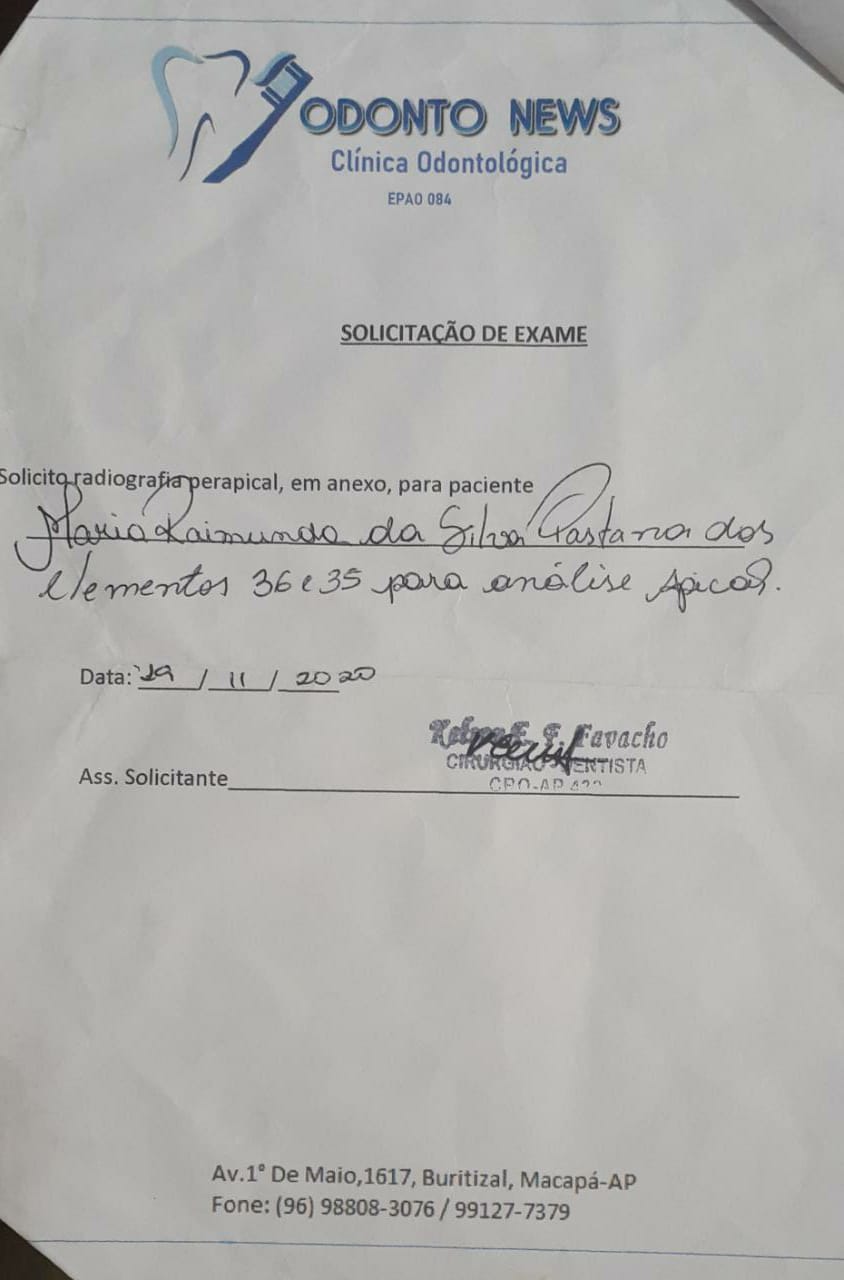 ODONTO NEWS
Clínica Odontológica
EPAO 084
SOLICITAÇÃO DE EXAME
Solicito radiografia perapical, em anexo, para paciente
Maria Raimunda da Silva Pastana dos
elementos 36 e 35 para análise Apical.
Data: 19 / 11 / 2020
E. F. Favacho
CIRURGIÃO DENTISTA
CRO-AP
Ass. Solicitante
Av.1º De Maio,1617, Buritizal, Macapá-AP
Fone: (96) 98808-3076 / 99127-7379